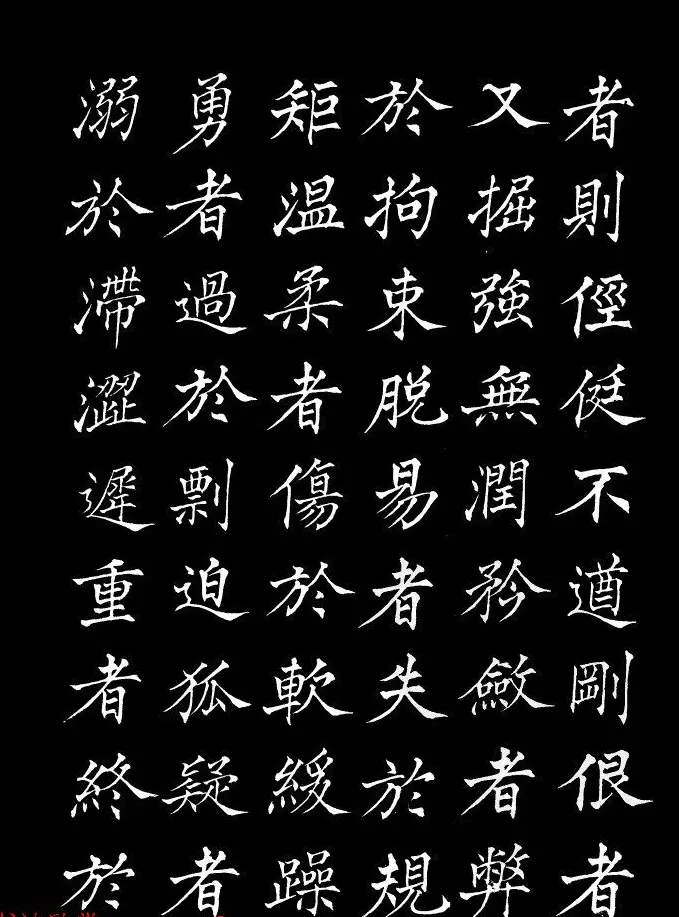 者則俓侹不遒剛佷者
又掘強無潤矜斂者弊
於拘束脱易者失於規
矩温柔者傷於軟緩躁
勇者過於剽迫狐疑者
溺於滯澀遲重者終於